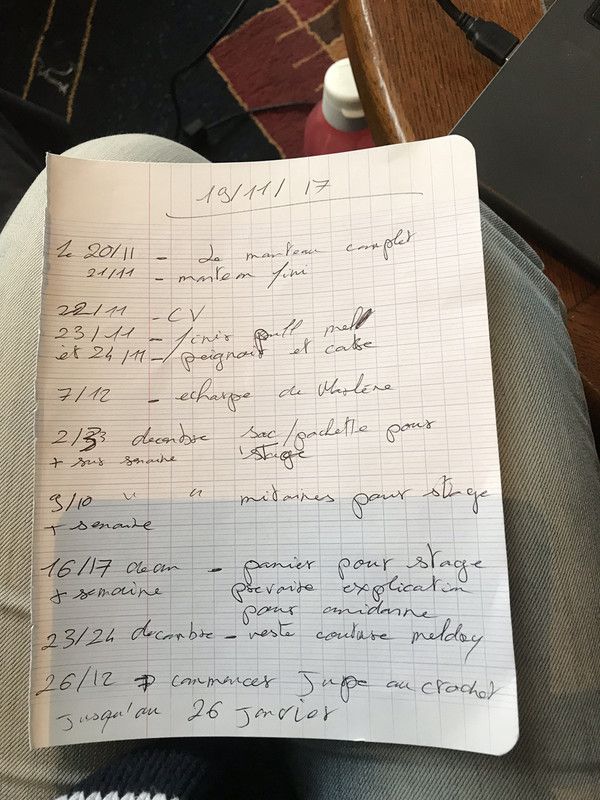 19/11/17
le 20/11 - Le manteau complet
21/11 - manteau fini
22/11 - CV
23/11 - finir pull mel
et 24/11 - peignoir et
7/12 - echarpe de Marlène
2/3 decembre sac/pochette pour
+ sus semaine stage
9/10 " " mitaines pour stage
+ semaine
16/17 - panier pour stage
+ semaine explication
pour
23/24 decembre - veste couture meldoy
26/12 → commencer Jupe au crochet
Jusqu'au 26 janvier